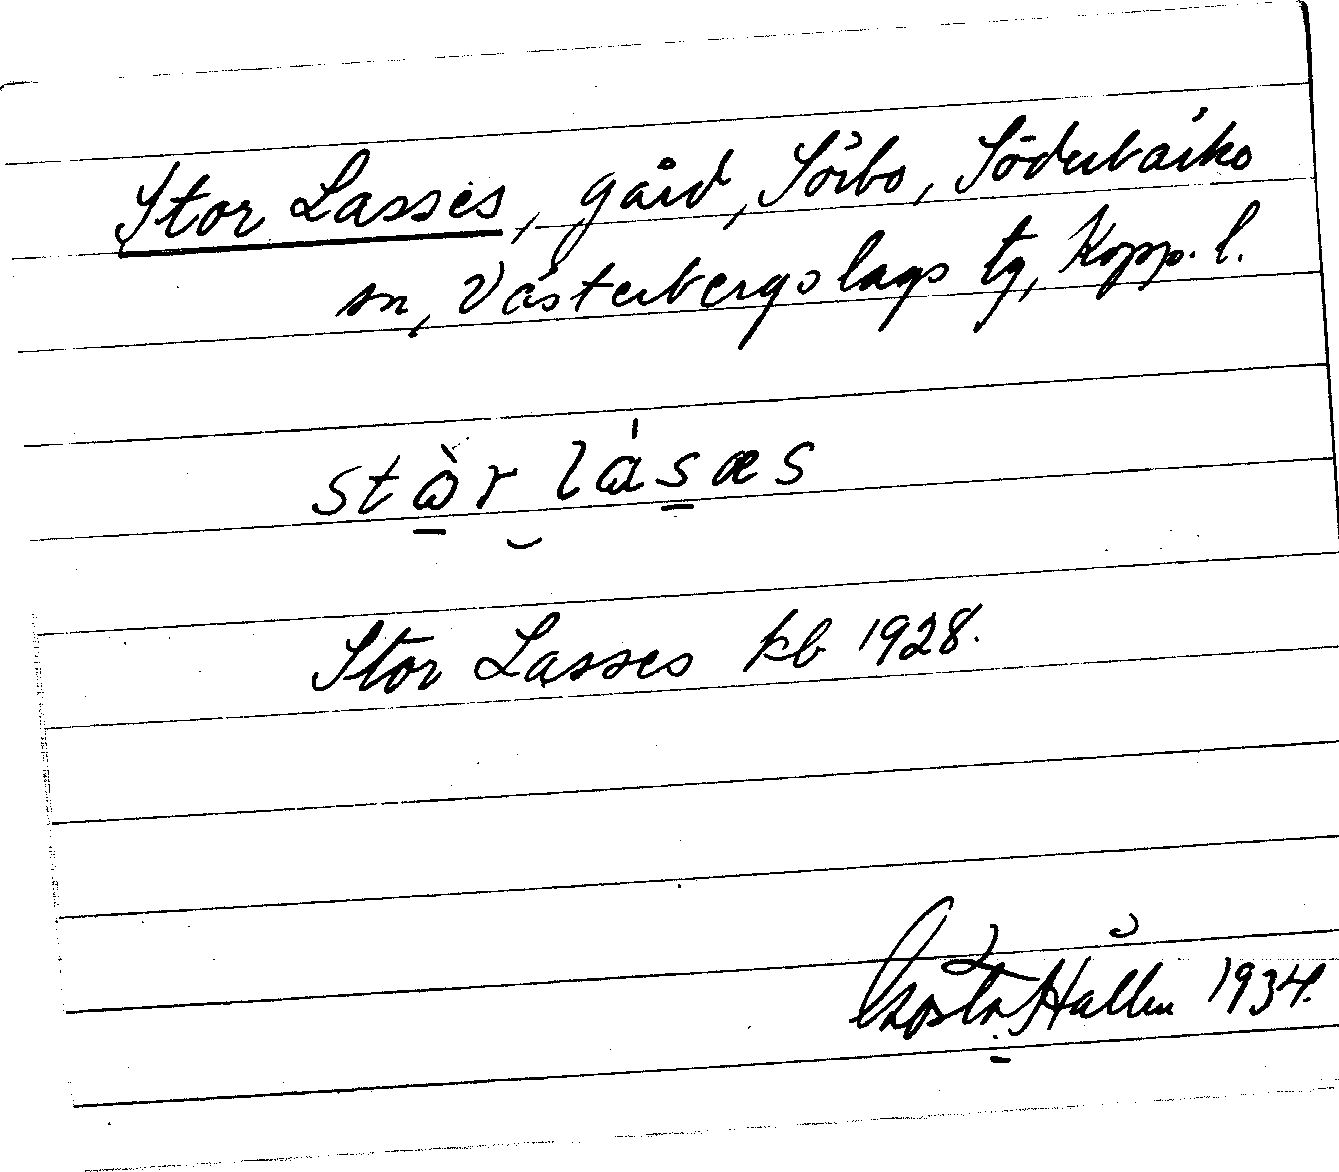 Stor Lasses, gård, Sörbo, Söderbärke
sn, Västerbergslags tg, Kopp. l.
stὼr lásæs
Stor Lasses kb 1928.
Gösta Hallén 1934.